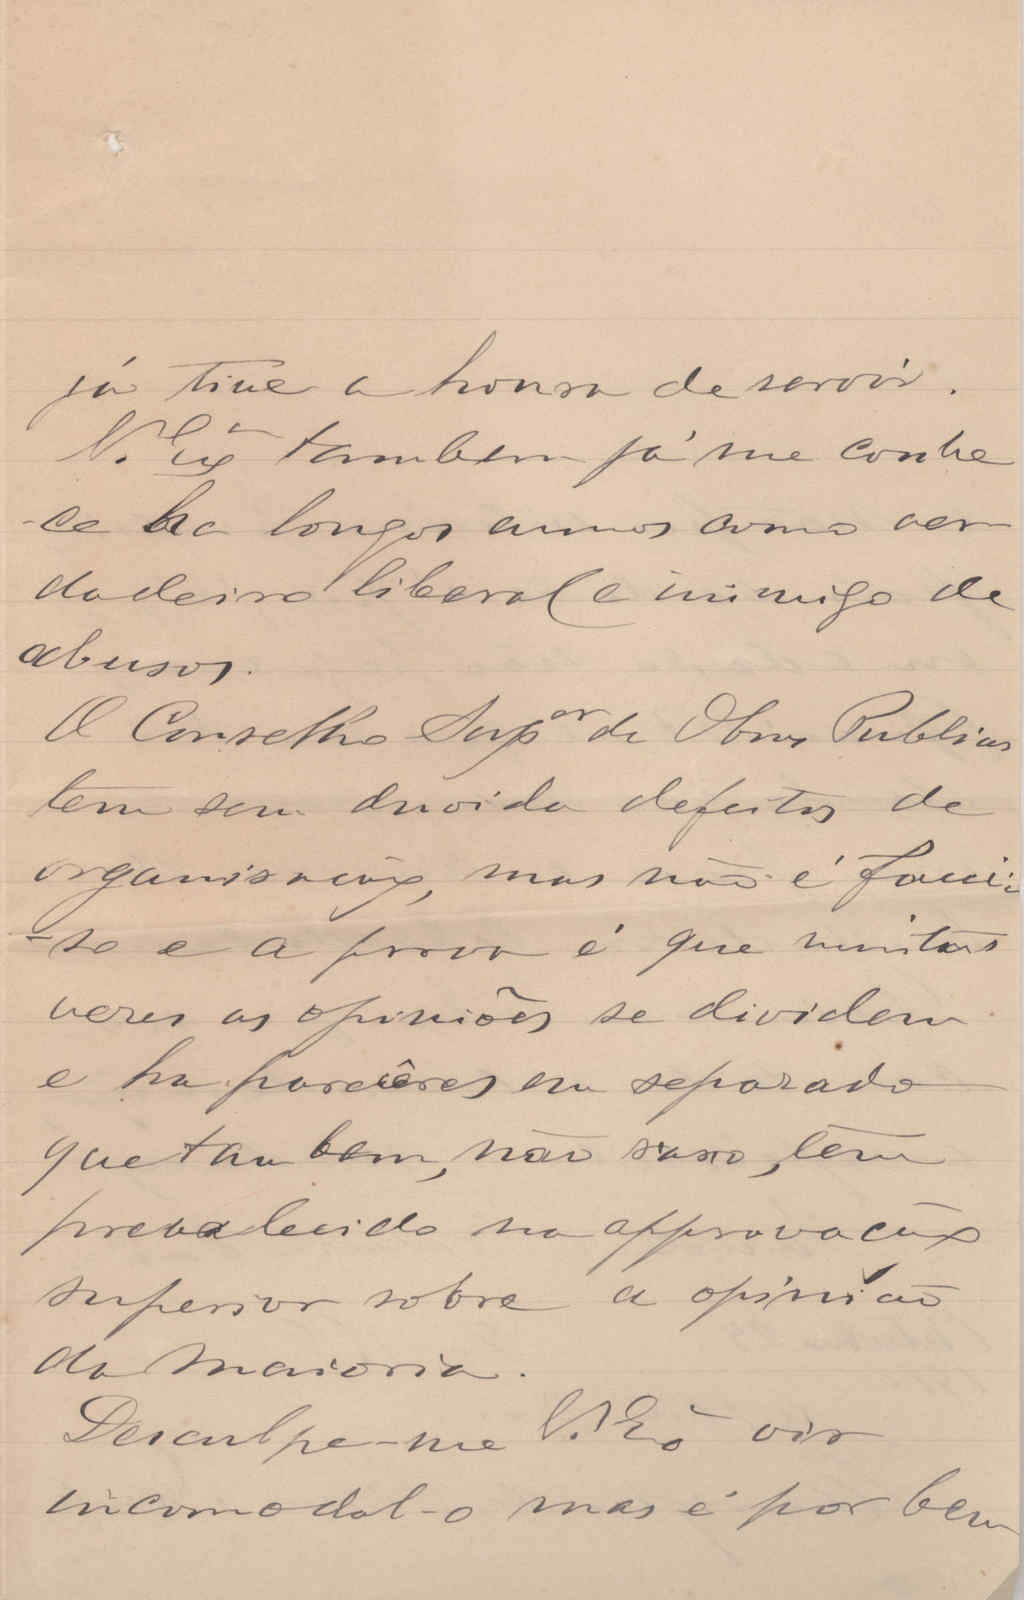 já tive a honra de servir.
V. Exª tambem já me conhe
-ce ha longos annos como ver
dadeiro liberal e inimigo de
abusos.
O Conselho Supor de Obras Publicas
tem sem duvida defeitos de
organisação, mas não é faccio
-so e a prova é que muitas
vezes as opiniões se dividem
e ha parecêres em separado
que tambem, não raro, têm
prevalecido na approvação
superior sobre a opinião
da maioria.
Desculpe-me V. Exª vir
incomodal-o mas é por bem